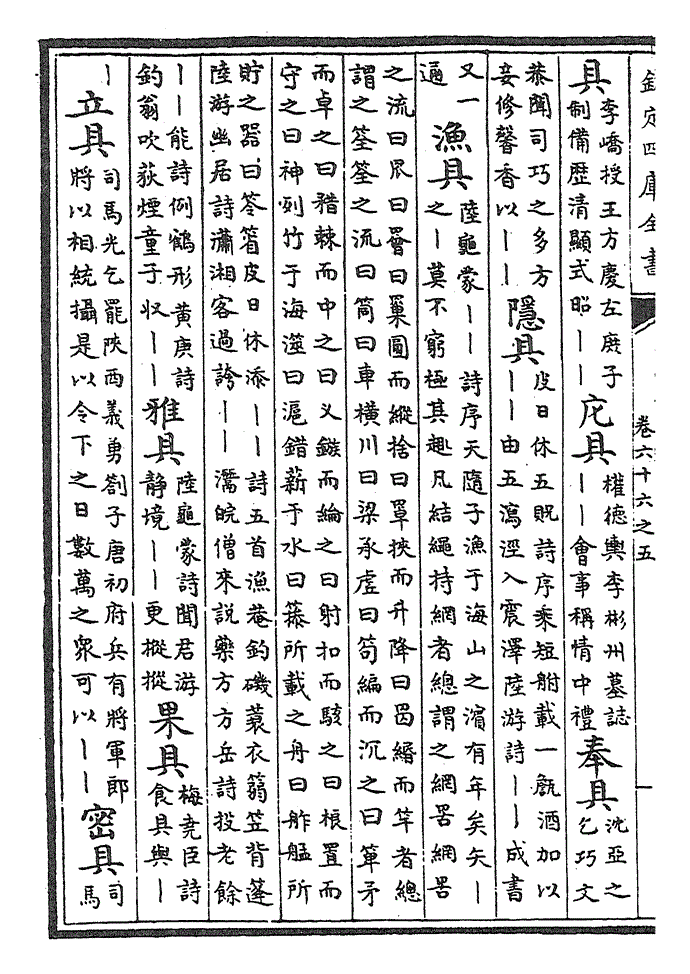 欽定四庫全書
卷六十六之五
一
具
李嶠授王方慶左庶子
制備歴清顯式昭――
庀具
權德輿李彬州墓誌
――會事稱情中禮
奉具
沈亞之
乞巧文
恭聞司巧之多方
妾修馨香以――
隱具
皮日休五貺詩序乘短舼載一甔酒加以
――由五瀉涇入震澤陸游詩――成書
又一
遍
漁具
陸龜蒙――詩序天隨子漁于海山之濱有年矣矢―
之―莫不窮極其趣凡結繩持網者總謂之網罟網罟
之流曰罛曰罾曰罺圓而縱捨曰罩挾而升降曰𦊓緡而竿者總
謂之筌筌之流曰筒曰車橫川曰梁承虛曰笱編而沉之曰箄矛
而卓之曰矠棘而中之曰义鏃而綸之曰射扣而駭之曰桹置而
守之曰神列竹于海澨曰滬錯薪于水曰䈞所載之舟曰舴艋所
貯之器曰笭箵皮日休添――詩五首漁菴釣磯蓑衣篛笠背蓬
陸游幽居詩瀟湘客過誇――灊皖僧來說藥方方岳詩投老餘
――能詩例鶴形黃庚詩
釣翁吹荻煙童子収――
雅具
陸龜蒙詩聞君游
静境――更摐摐
果具
梅堯臣詩
食具與―
―
立具
司馬光乞罷陜西義勇劄子唐初府兵有將軍郎
將以相統攝是以令下之日數萬之衆可以――
密具
司
馬